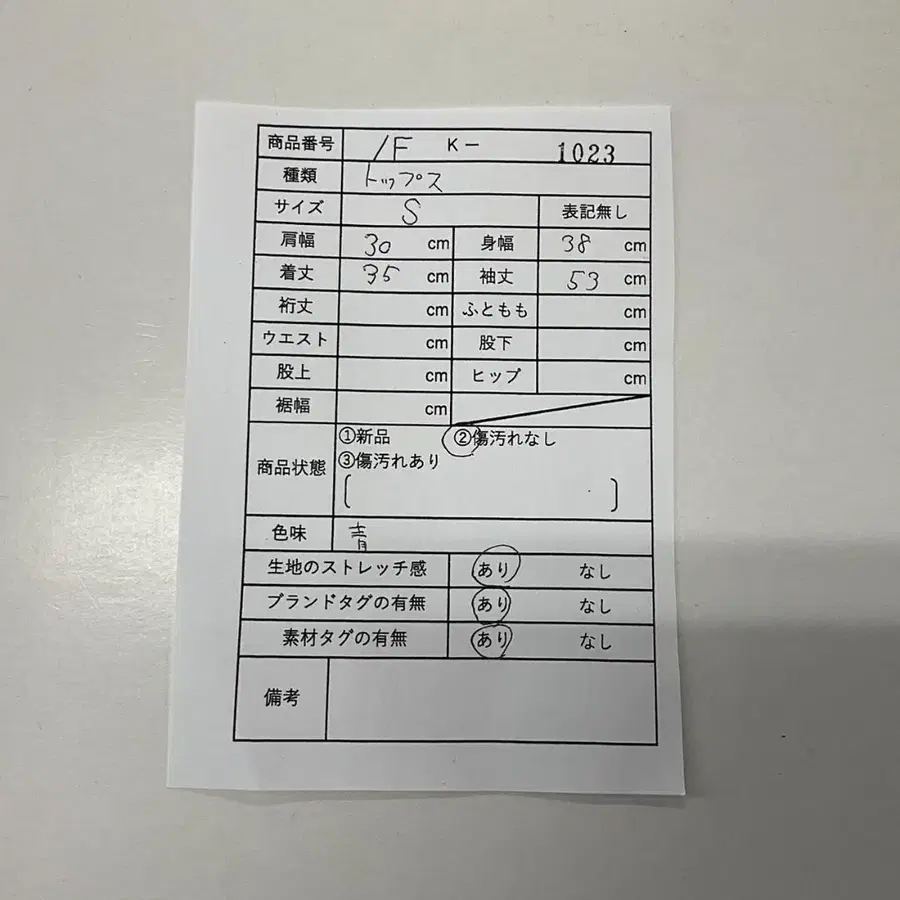 商品番号 1F K- 1023
種類 トップス
サイズ S 表記無し
肩幅 30 cm 身幅 38 cm
着丈 35 cm 袖丈 53 cm
裄丈 cm ふともも cm
ウエスト cm 股下 cm
股上 cm ヒップ cm
裾幅 cm
商品状態 ①新品 ②傷汚れなし
③傷汚れあり
色味 青
生地のストレッチ感 あり なし
ブランドタグの有無 あり なし
素材タグの有無 あり なし
備考